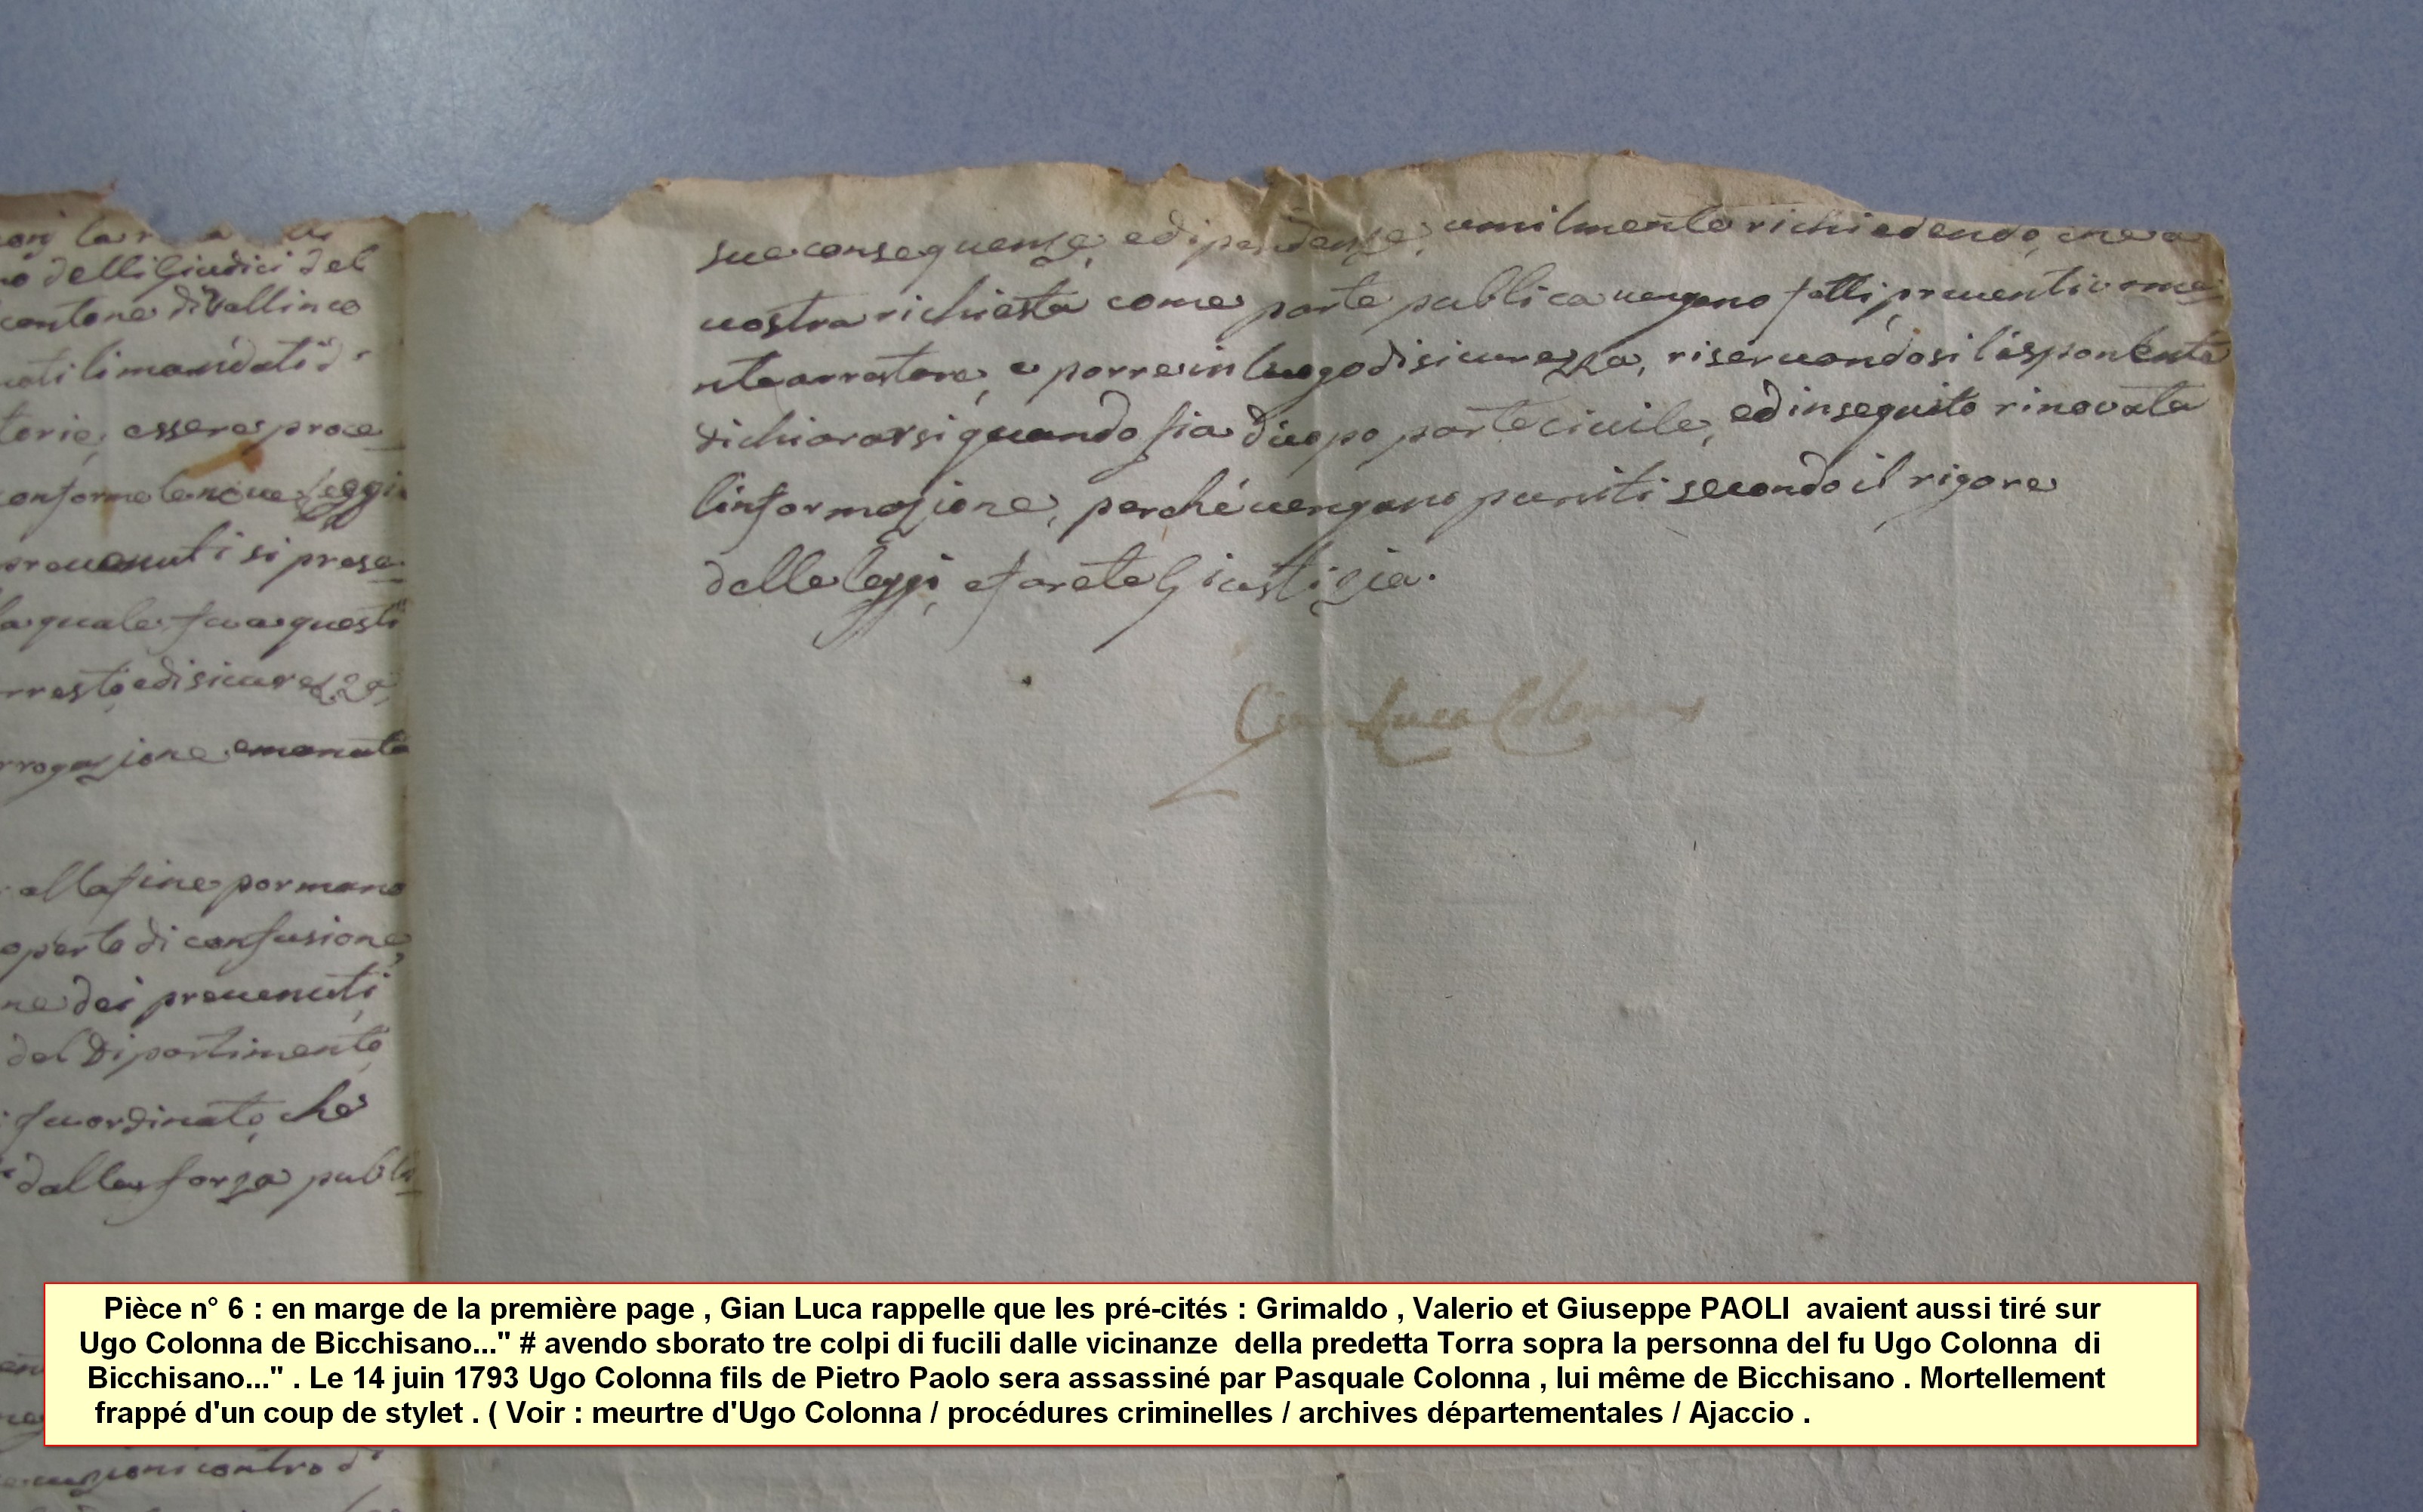 no delli Giudici del
cantone di Vallinco
nati li mandati d
torie, essere proce
conforme le nuove Leggi
prevenuti si prese
la quale fu a questi
rresto, e di sicurezza,
rrogazione emanata
alla fine per mano
operta di confusione,
ne dei prevenuti,
del Dipartimento,
fu ordinato, che
dalla forza publi
contro d
sue conseguenze, e dipendenze; umilmente richiedendo, che a
vostra richiesta come parte publica vengano fatti preventivame
nte arrestare, e porre in luogo di sicurezza, riservandosi l'esponente
dichiararsi quando fia d'uopo parte civile, ed in seguito rinovata
l'informazione, perché vengano puniti secondo il rigore
delle leggi, e farete Giustizia.
Gian Luca Colonna
Pièce n° 6 : en marge de la première page , Gian Luca rappelle que les pré-cités : Grimaldo , Valerio et Giuseppe PAOLI avaient aussi tiré sur
Ugo Colonna de Bicchisano..." # avendo sborato tre colpi di fucili dalle vicinanze della predetta Torra sopra la personna del fu Ugo Colonna di
Bicchisano..." . Le 14 juin 1793 Ugo Colonna fils de Pietro Paolo sera assassiné par Pasquale Colonna , lui même de Bicchisano . Mortellement
frappé d'un coup de stylet . ( Voir : meurtre d'Ugo Colonna / procédures criminelles / archives départementales / Ajaccio .